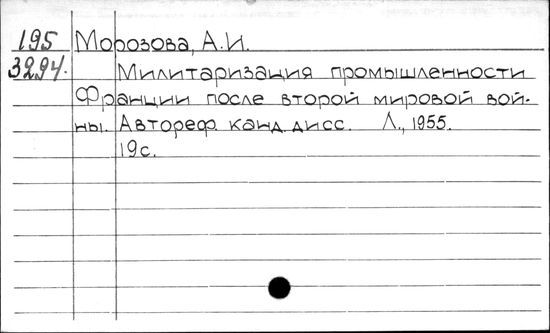 195 Морозова, А.И.
3294. Милитаризация промышленности
Франции после второй мировой вой-
ны. Автореф. канд. дисс. Л., 1955.
19с.